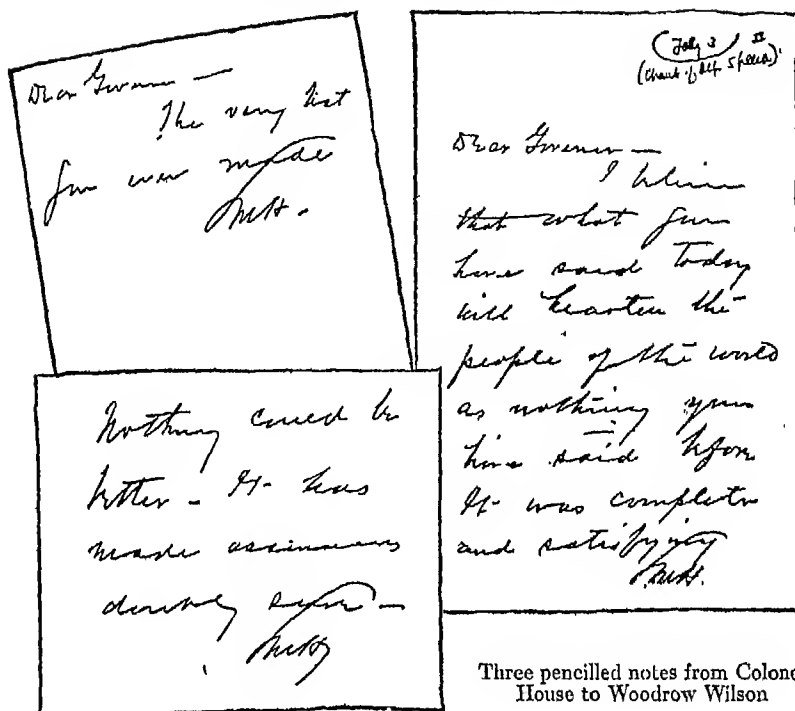 Dear Governor —
The very best
you ever made
EMH.
Nothing could be
better - It has
made assurances
doubly sure —
EMH
Feby 3 II
Dear Governor —
I believe
that what you
have said today
will hearten the
people of the world
as nothing you
have said before
It was complete
and satisfying
EMH.
Three pencilled notes from Colone
House to Woodrow Wilson